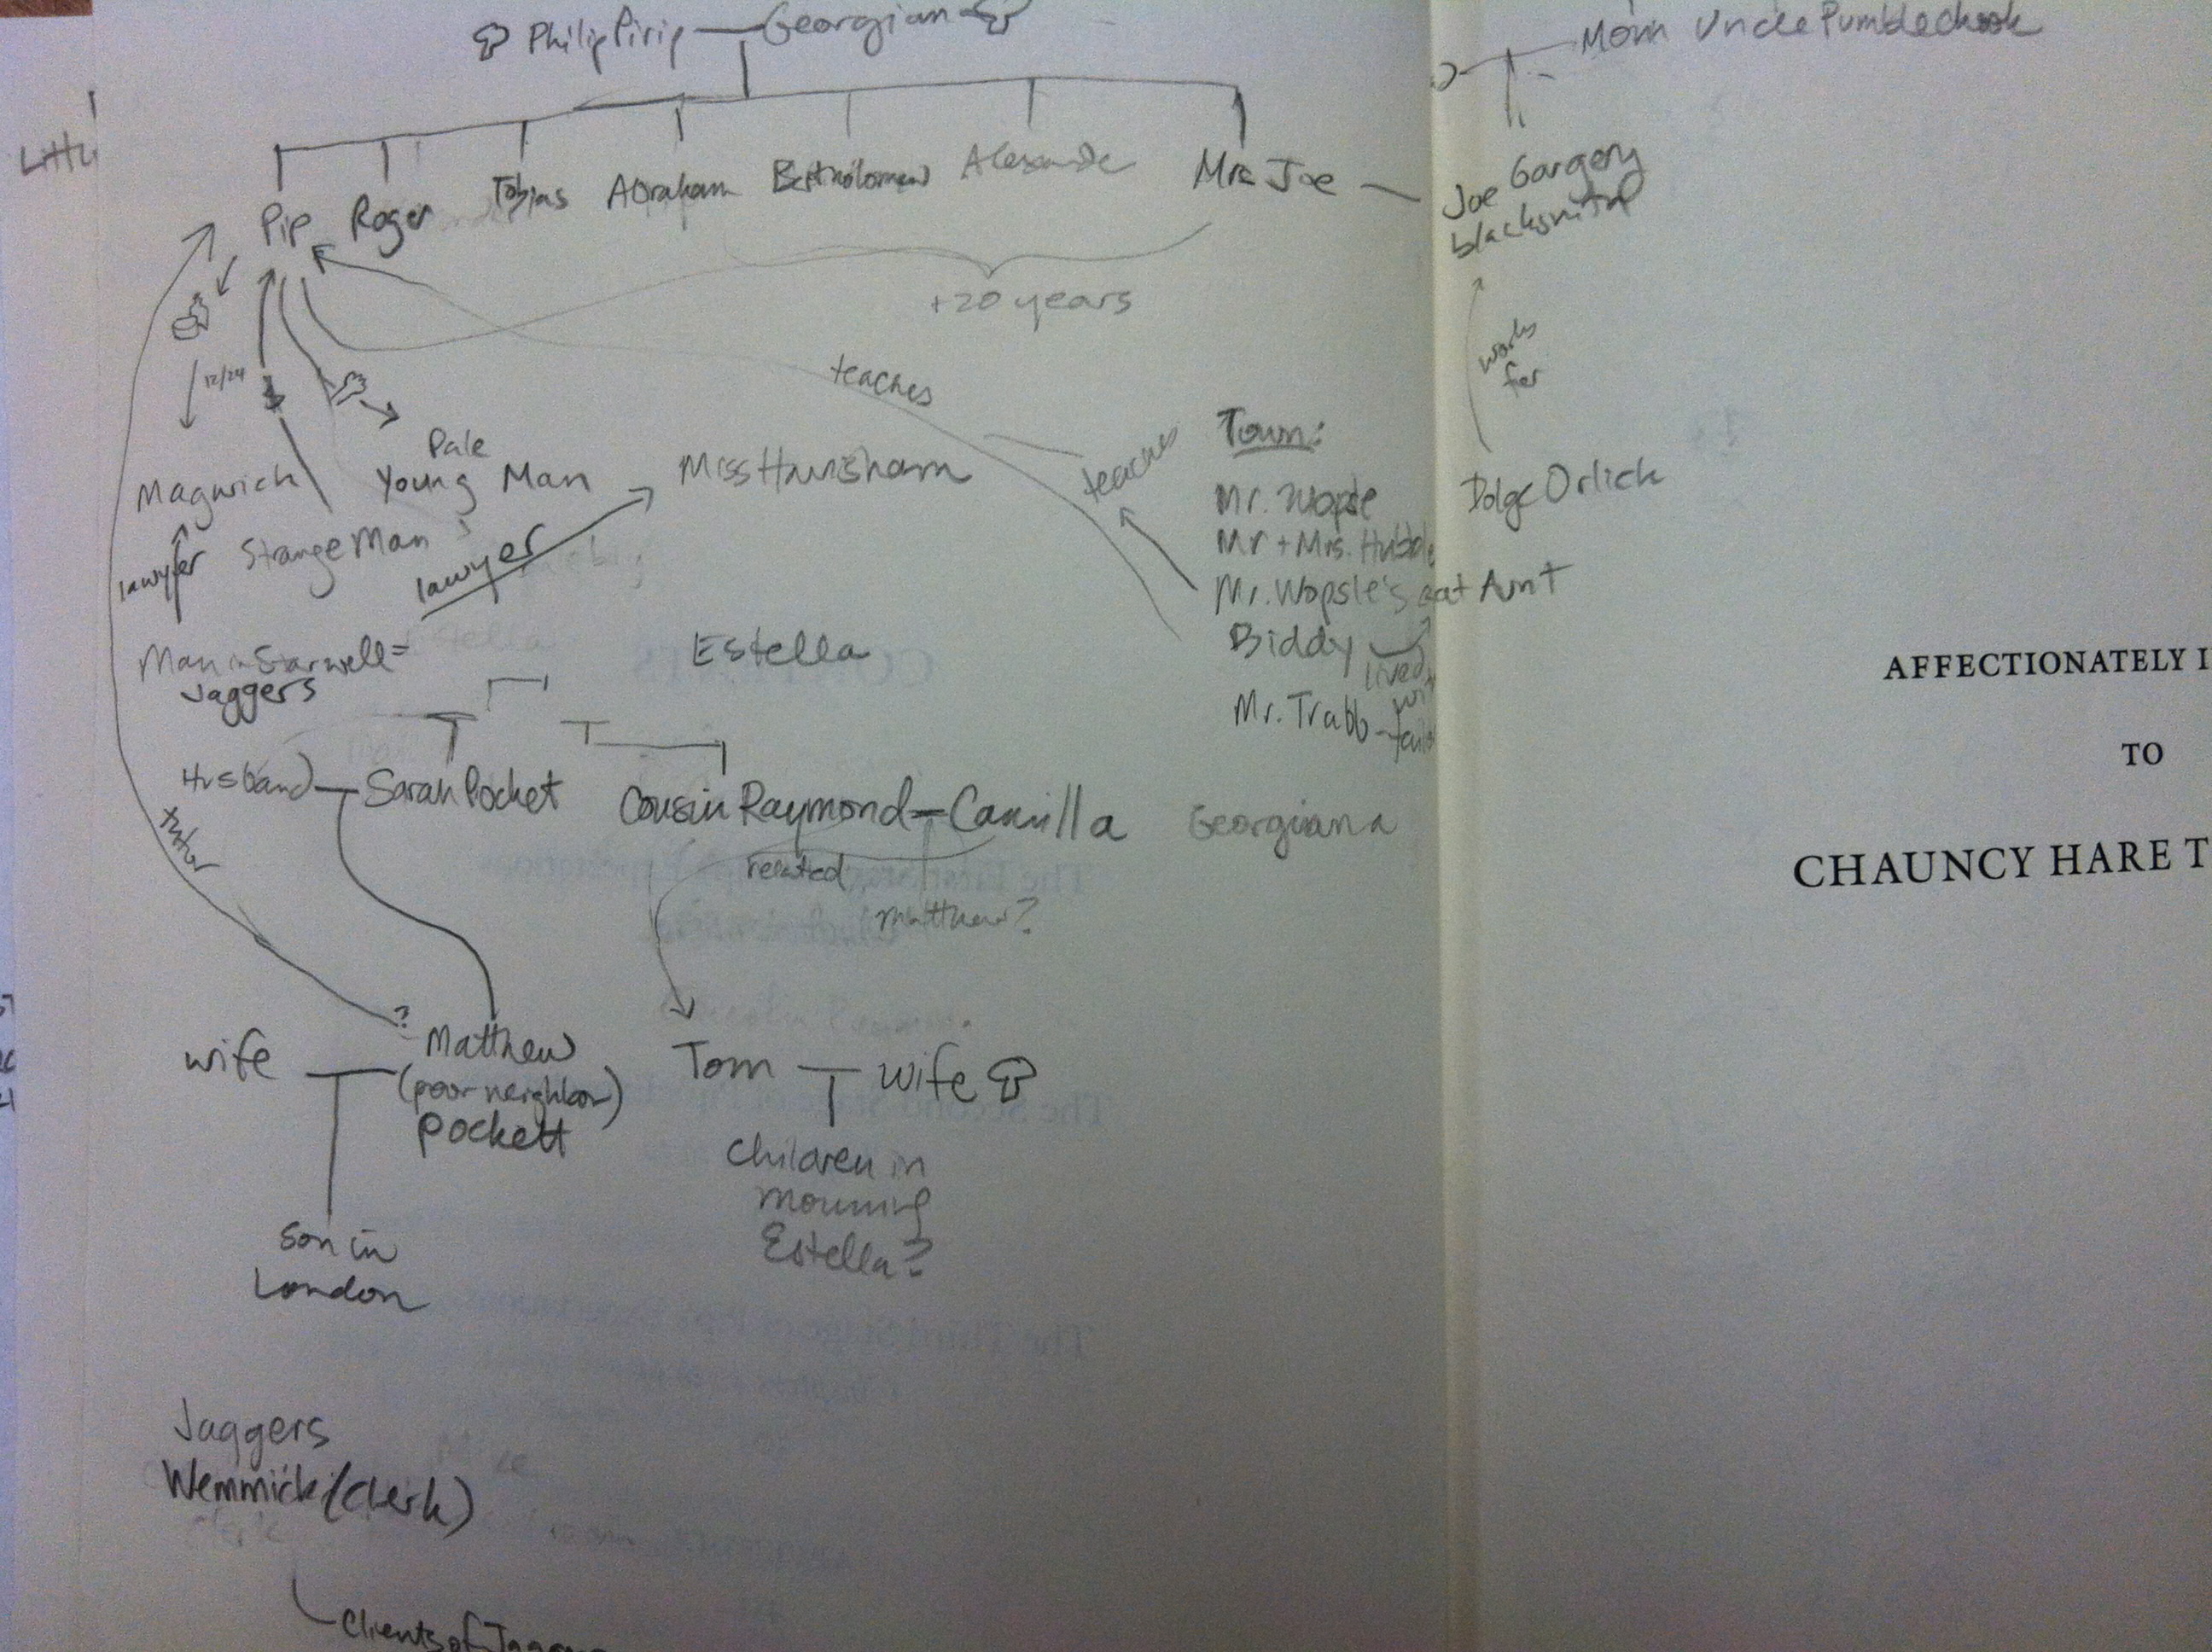 Philip Pirip — Georgian
Mom Uncle Pumblechook
Pip Roger Tobias Abraham Bartholomew Alexande Mrs Joe
Joe Gargery
blacksmith
+20 years
12/24
works
for
teaches
teaches
Town:
Pale
Young Man
Magwich
Miss Havisham
Mr. Wopsle
Dolge Orlick
Mr + Mrs. Hubble
lawyer
Strange Man
lawyer
Mr. Wopsle's eat Aunt
Biddy
lived
Man in Starwell =
Jaggers
Estella
Mr. Trabb -
Husband — Sarah Pocket
Cousin Raymond — Camilla Georgiana
tutor
related
Matthew?
?
wife
Matthew
(poor neighbor)
Pockett
Tom wife
Children in
mourning
Estella?
Son in
London
Jaggers
Wemmick (clerk)
Clients of
AFFECTIONATELY I
TO
CHAUNCY HARE T